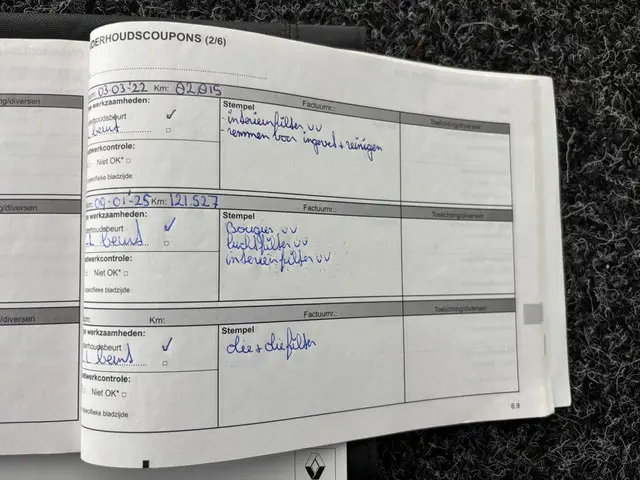 DERHOUDSCOUPONS (2/6)
03-03-22 Km:
ng/diversen
e werkzaamheden:
Stempel
Factuurnr.:
Toelichting/diversen
erhoudsbeurt ✓
- interieurfilter vv
beurt □
- remmen voor ingevet + reinigen
atwerkcontrole:
□ Niet OK* □
specifieke bladzijde
g/diversen
09-01-25 Km: 121.527
werkzaamheden:
Stempel
Factuurnr.:
Toelichting/diversen
rhoudsbeurt ✓
Bougies vv
L beurt □
luchtfilter vv
interieurfilter vv
twerkcontrole:
Niet OK* □
pecifieke bladzijde
tum: Km:
/diversen
e werkzaamheden:
Stempel
Factuurnr.:
Toelichting/diversen
erhoudsbeurt ✓
olie + oliefilter
L beurt □
atwerkcontrole:
Niet OK* □
specifieke bladzijde
6.9